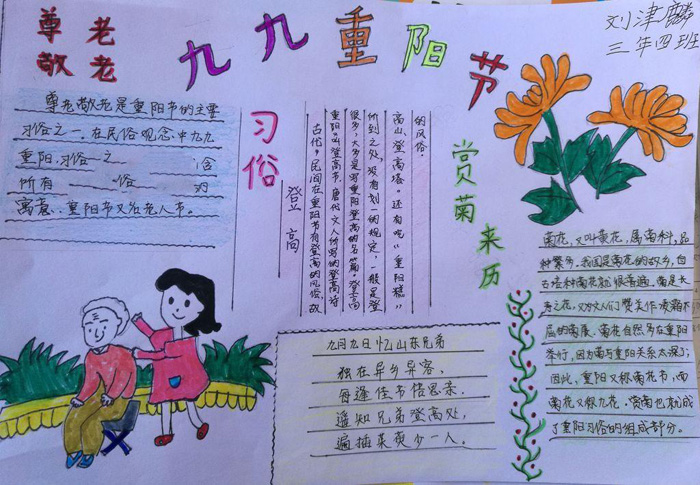 尊老
敬老
九九重阳节
刘津麟
三年四班
尊老敬老是重阳节的主要
习俗之一,在民俗观念中九九
重阳,习俗一之 含
所有 俗 为
寓意.重阳节又访老人节。
习俗
登高
古代,民间在重阳节有登高的风俗,故
重阳,叫登高节。唐代文人所写的登高诗
很多,大多是写重阳登高的名篇。登高
所到之处,没有划一的规定,一般是登
高山、登高塔。还有吃“重阳糕”
的风俗.
赏菊来历
菊花,又叫黄花,属菊科,品
种繁多,我国是菊花的故乡,自
古培种菊花就很普遍。菊是长
寿之花,又为文人们赞美作凌霜不
屈的菊展,菊花自然多在重阳
举行,因为菊与重阳关系太深了,
因此,重阳又称菊花节,而
菊花又称九花.赏菊也就成
了重阳习俗的组成部分。
九月九日忆山东兄弟
独在异乡异客,
每逢佳节倍思亲.
遥知兄弟登高处,
遍插茱萸少一人。